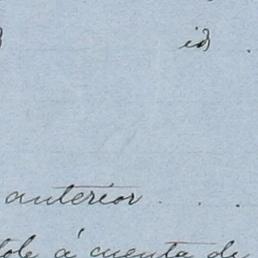 id .
anterior . . .
á cuenta de